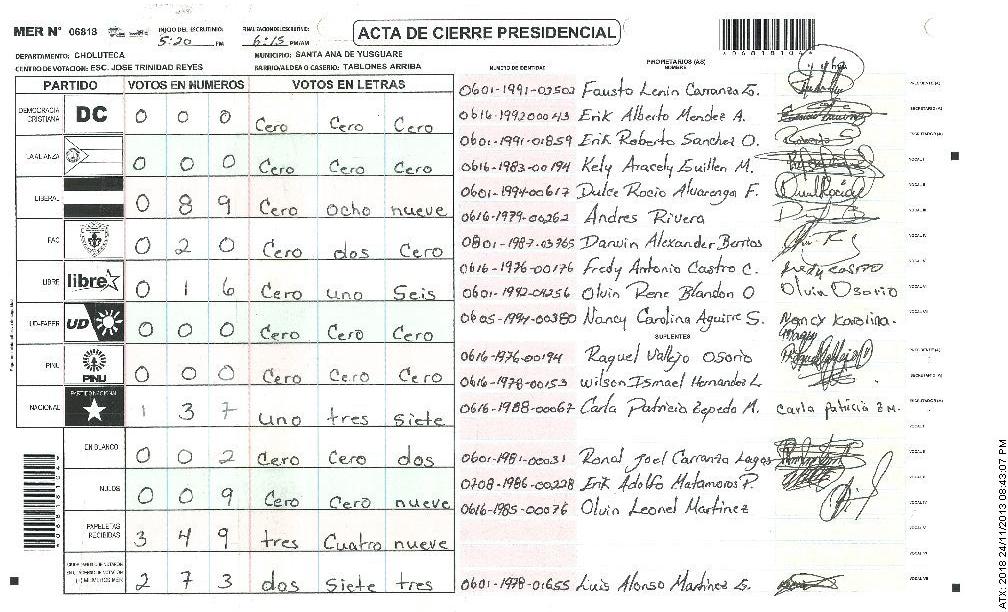 MER N° 06818 INICIO DEL ESCRUTINIO: 5:20 PM FINALIZACION DEL ESCRUTINIO: 6:15 PM/AM ACTA DE CIERRE PRESIDENCIAL
DEPARTAMENTO: CHOLUTECA MUNICIPIO: SANTA ANA DE YUSGUARE
CENTRO DE VOTACION: ESC. JOSE TRINIDAD REYES BARRIO/ALDEA O CASERIO: TABLONES ARRIBA
PARTIDO VOTOS EN NUMEROS VOTOS EN LETRAS
DEMOCRACIA CRISTIANA DC 0 0 0 Cero Cero Cero
LA ALIANZA 0 0 0 Cero Cero Cero
LIBERAL 0 8 9 Cero ocho nueve
PAC 0 2 0 Cero dos Cero
LIBRE libre 0 1 6 Cero uno Seis
UD-FAPER UD 0 0 0 Cero Cero Cero
PINU PINU 0 0 0 Cero Cero Cero
NACIONAL PARTIDO NACIONAL 1 3 7 uno tres siete
EN BLANCO 0 0 2 Cero Cero dos
NULOS 0 0 9 Cero Cero nueve
PAPELETAS RECIBIDAS 3 4 9 tres Cuatro nueve
2 7 3 dos siete tres
NUMERO DE IDENTIDAD PROPIETARIOS (AS) NOMBRE
0601-1991-03503 Fausto Lenin Carranza G.
0616-199200043 Erik Alberto Mendez A.
0601-1991-01859 Erik Roberto Sanchez O.
0616-1983-00194 Kely Aracely Guillen M.
0601-1994-00617 Dulce Rocio Alvarenga F.
0616-1979-00262 Andres Rivera
0801-1987-03765 Darwin Alexander Berrios
0616-1976-00176 Fredy Antonio Castro C. fredy castro
0601-1992-01256 Olvin Rene Blandon O Olvin Osorio
0605-1994-00380 Nancy Carolina Aguirre S. Nancy Karolina.
SUPLENTES
0616-1976-00194 Raquel Vallejo Osorio
0616-1978-00153 Wilson Ismael Hernandez L
0616-1988-00067 Carla Patricia Zepeda M. Carla patricia Z M.
0601-1981-00031 Ronal Joel Carranza Lagos
0708-1986-00228 Erik Adolfo Matamoros P.
0616-1985-00076 Olvin Leonel Martinez
0601-1978-01655 Luis Alonso Martinez G.
ATX 2018 24/11/2013 08:43:07 PM